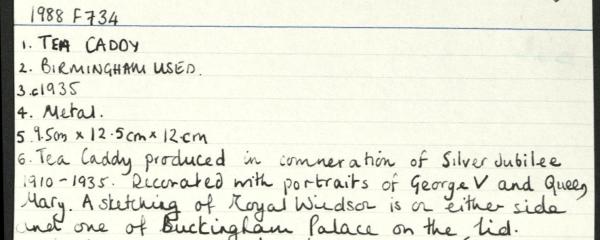 1988 F734
1. TEA CADDY
2. BIRMINGHAM USED.
3. c1935
4. Metal.
5. 9.5cm x 12.5cm x 12cm
6. Tea Caddy produced in comneration of Silver Jubilee
1910-1935. Decorated with portraits of George V and Queen
Mary. A sketching of Royal Windsor is on either side
and one of Buckingham Palace on the lid.